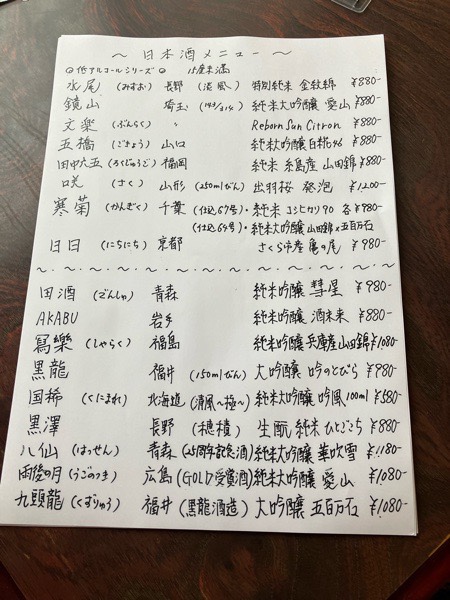 ～ 日本酒メニュー ～
◎低アルコールシリーズ◎ 15度未満
水尾 (みずお) 長野 (淡風、) 特別純米 金紋錦 ¥880-
鏡山 埼玉 純米大吟醸 愛山 ¥880-
文楽 (ぶんらく) 〃 Reborn Sun Citron ¥880-
五橋 (ごきょう) 山口 純米大吟醸 白糀 ¥880-
田中六五 (ろくじゅうご) 福岡 純米 糸島産 山田錦 ¥880-
咲 (さく) 山形 (250mlびん) 出羽桜 発泡 ¥1,200-
寒菊 (かんぎく) 千葉 (仕込67号)・純米 コシヒカリ90 各 ¥980-
(仕込64号)・純米大吟醸 山田錦x五百万石
日日 (にちにち) 京都 さくら市産 亀の尾 ¥980-
～.～.～.～.～.～.～.～.～
田酒 (でんしゅ) 青森 純米吟醸 彗星 ¥980-
AKABU 岩手 純米吟醸 酒未来 ¥880-
寫樂 (しゃらく) 福島 純米吟醸 兵庫産山田錦 ¥1,080-
黒龍 福井 (150mlびん) 大吟醸 吟のとびら ¥980-
国稀 (くにまれ) 北海道 (清風～極～) 純米大吟醸 吟風 100ml ¥580-
黒澤 長野 (穂積) 生酛 純米 ひとごこち ¥880-
八仙 (はっせん) 青森 (25周年記念酒) 純米大吟醸 華吹雪 ¥1,180-
雨後の月 (うごのつき) 広島 (GOLD受賞酒) 純米大吟醸 愛山 ¥1,080-
九頭龍 (くずりゅう) 福井 (黒龍酒造) 大吟醸 五百万石 ¥1,080-